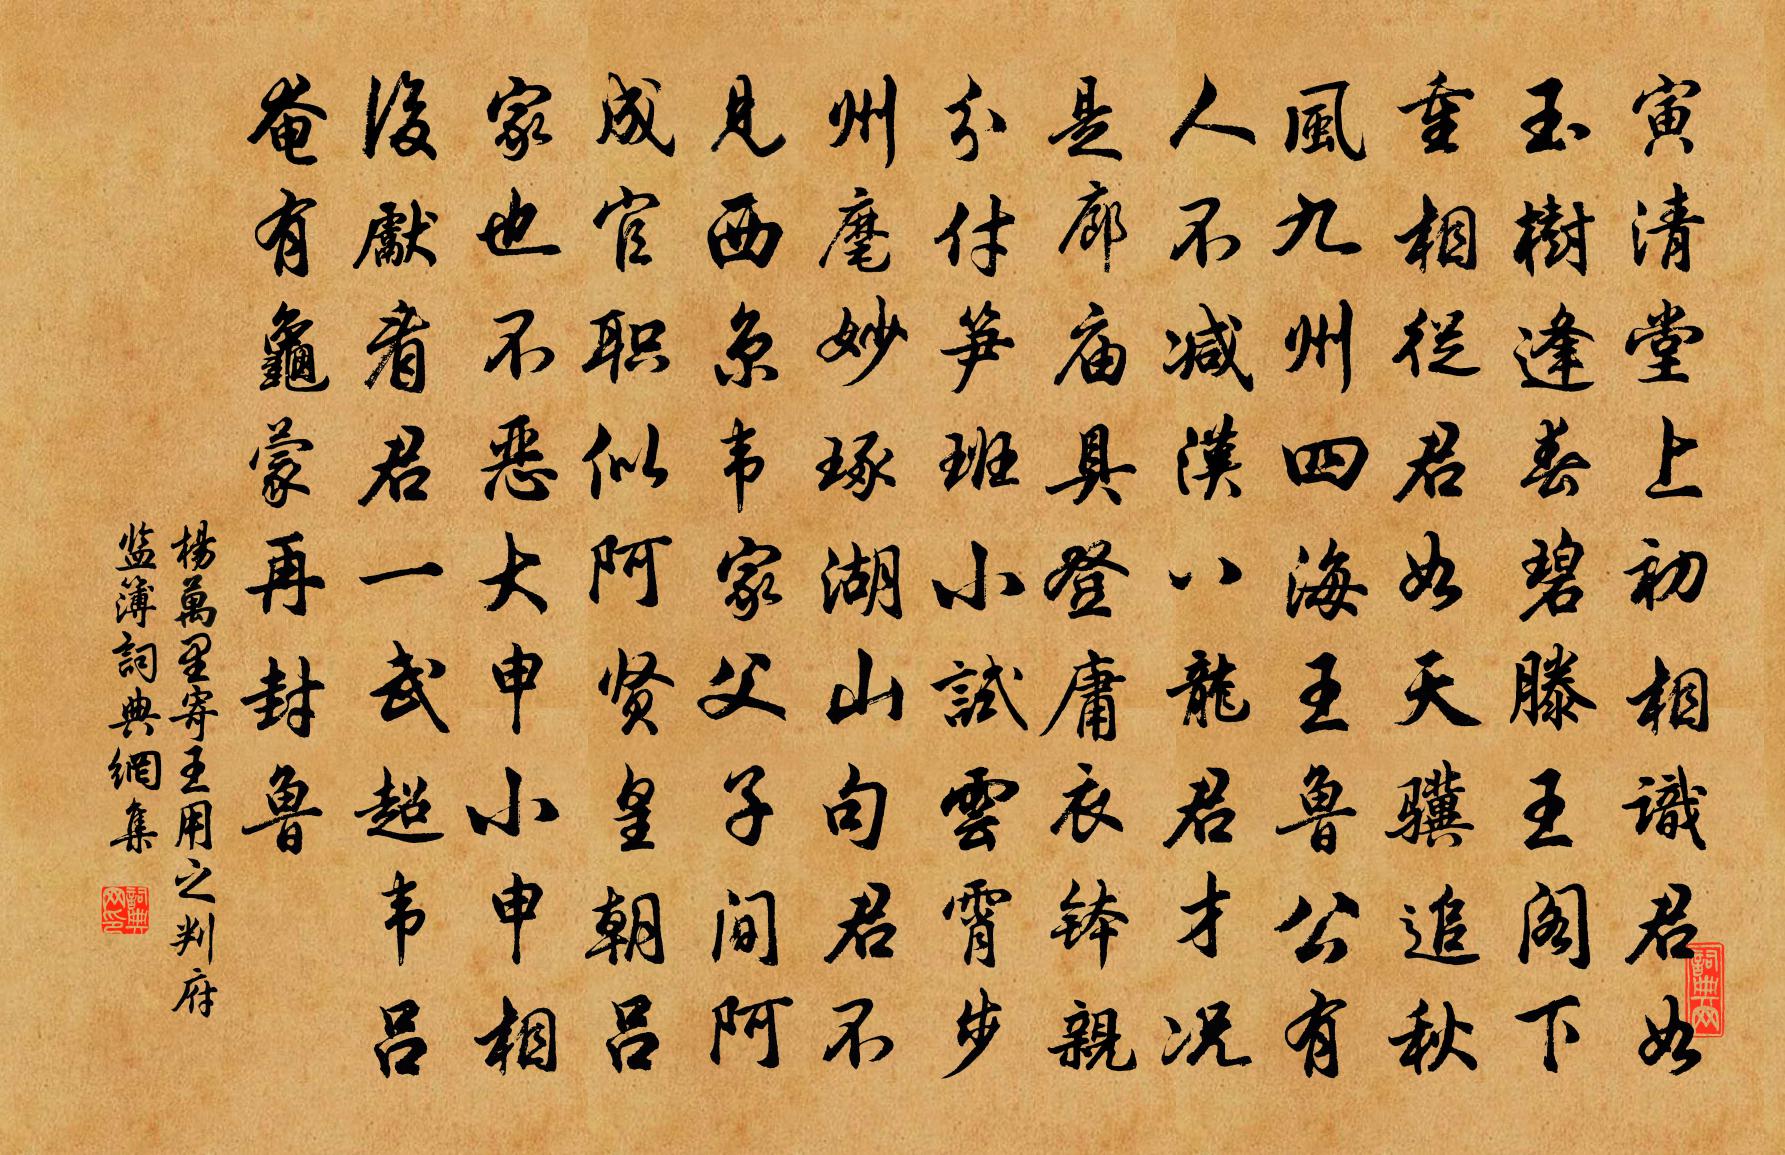 寅清堂上初相識君如
玉樹逢春碧滕王阁下
重相從君如天骥追秋
風九州四海王魯公有
人不减漢八龍君才况
是廊庙具登庸衣钵親
分付笋班小試雲霄步
州麾妙琢湖山句君不
見西京韦家父子间阿
成官职似阿贤皇朝吕
家也不恶大申小申相
後獻看君一武超韦吕
奄有龜蒙再封魯
楊萬里寄王用之判府
监簿詞典網集
詞典网
詞典网印